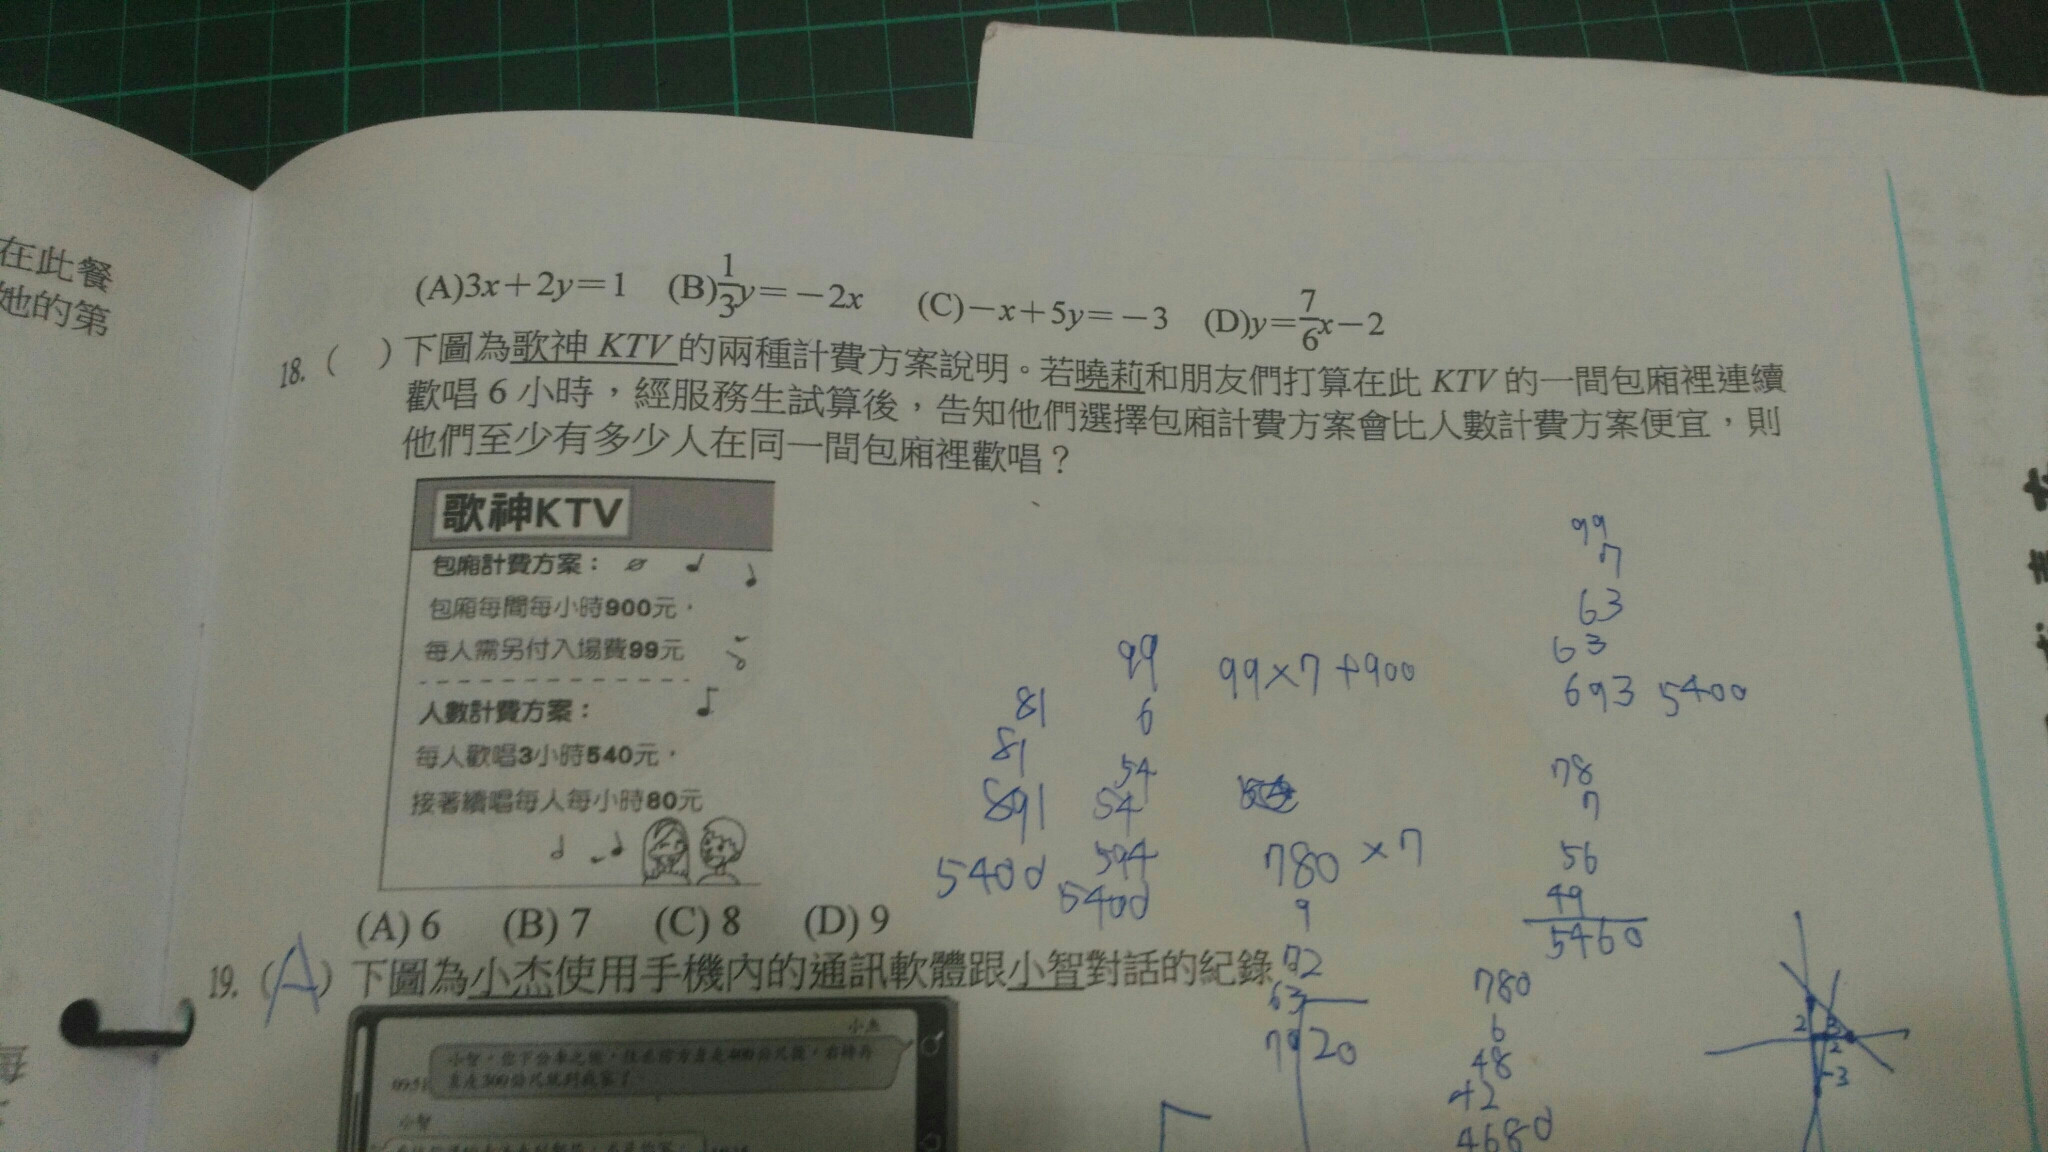 在此餐
她的第
(A)3x+2y=1 (B)1/3y=-2x (C)-x+5y=-3 (D)y=7/6x-2
18.( )下圖為歌神KTV的兩種計費方案說明。若曉莉和朋友們打算在此KTV的一間包廂裡連續
歡唱6小時，經服務生試算後，告知他們選擇包廂計費方案會比人數計費方案便宜，則
他們至少有多少人在同一間包廂裡歡唱？
歌神KTV
包廂計費方案：
包廂每間每小時900元，
每人需另付入場費99元
人數計費方案：
每人歡唱3小時540元，
接著續唱每人每小時80元
(A) 6 (B) 7 (C) 8 (D) 9
81
81
891
5400
99
6
54
54
594
5400
99×7+900
780×7
9
72
63
7920
99
7
63
63
693 5400
78
7
56
49
5460
780
6
48
42
4680
2
2
-3
19.(A)下圖為小杰使用手機內的通訊軟體跟小智對話的紀錄
小杰
小智